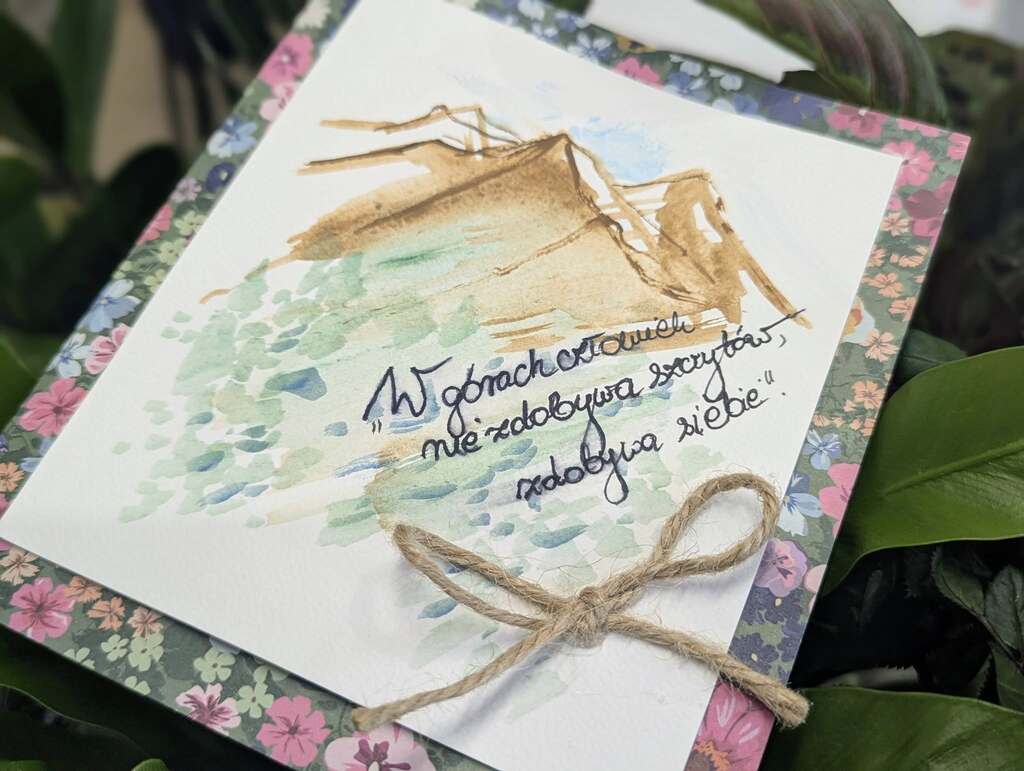 „W górach człowiek
nie zdobywa szczytów,
zdobywa siebie".